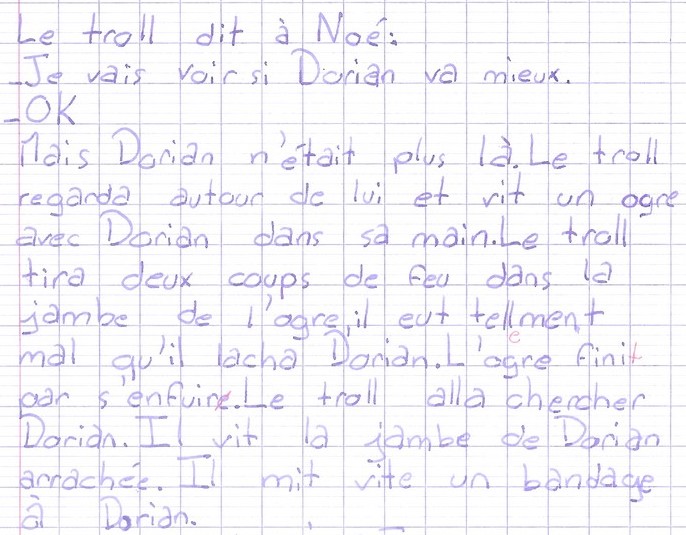 Le troll dit à Noé:
_Je vais voir si Dorian va mieux.
_OK
Mais Dorian n'était plus là.Le troll
regarda autour de lui et vit un ogre
avec Dorian dans sa main.Le troll
tira deux coups de feu dans la
jambe de l'ogre,il eut tellement
mal qu'il lacha Dorian.L'ogre finit
par s'enfuir.Le troll alla chercher
Dorian. Il vit la jambe de Dorian
arrachée. Il mit vite un bandage
à Dorian.